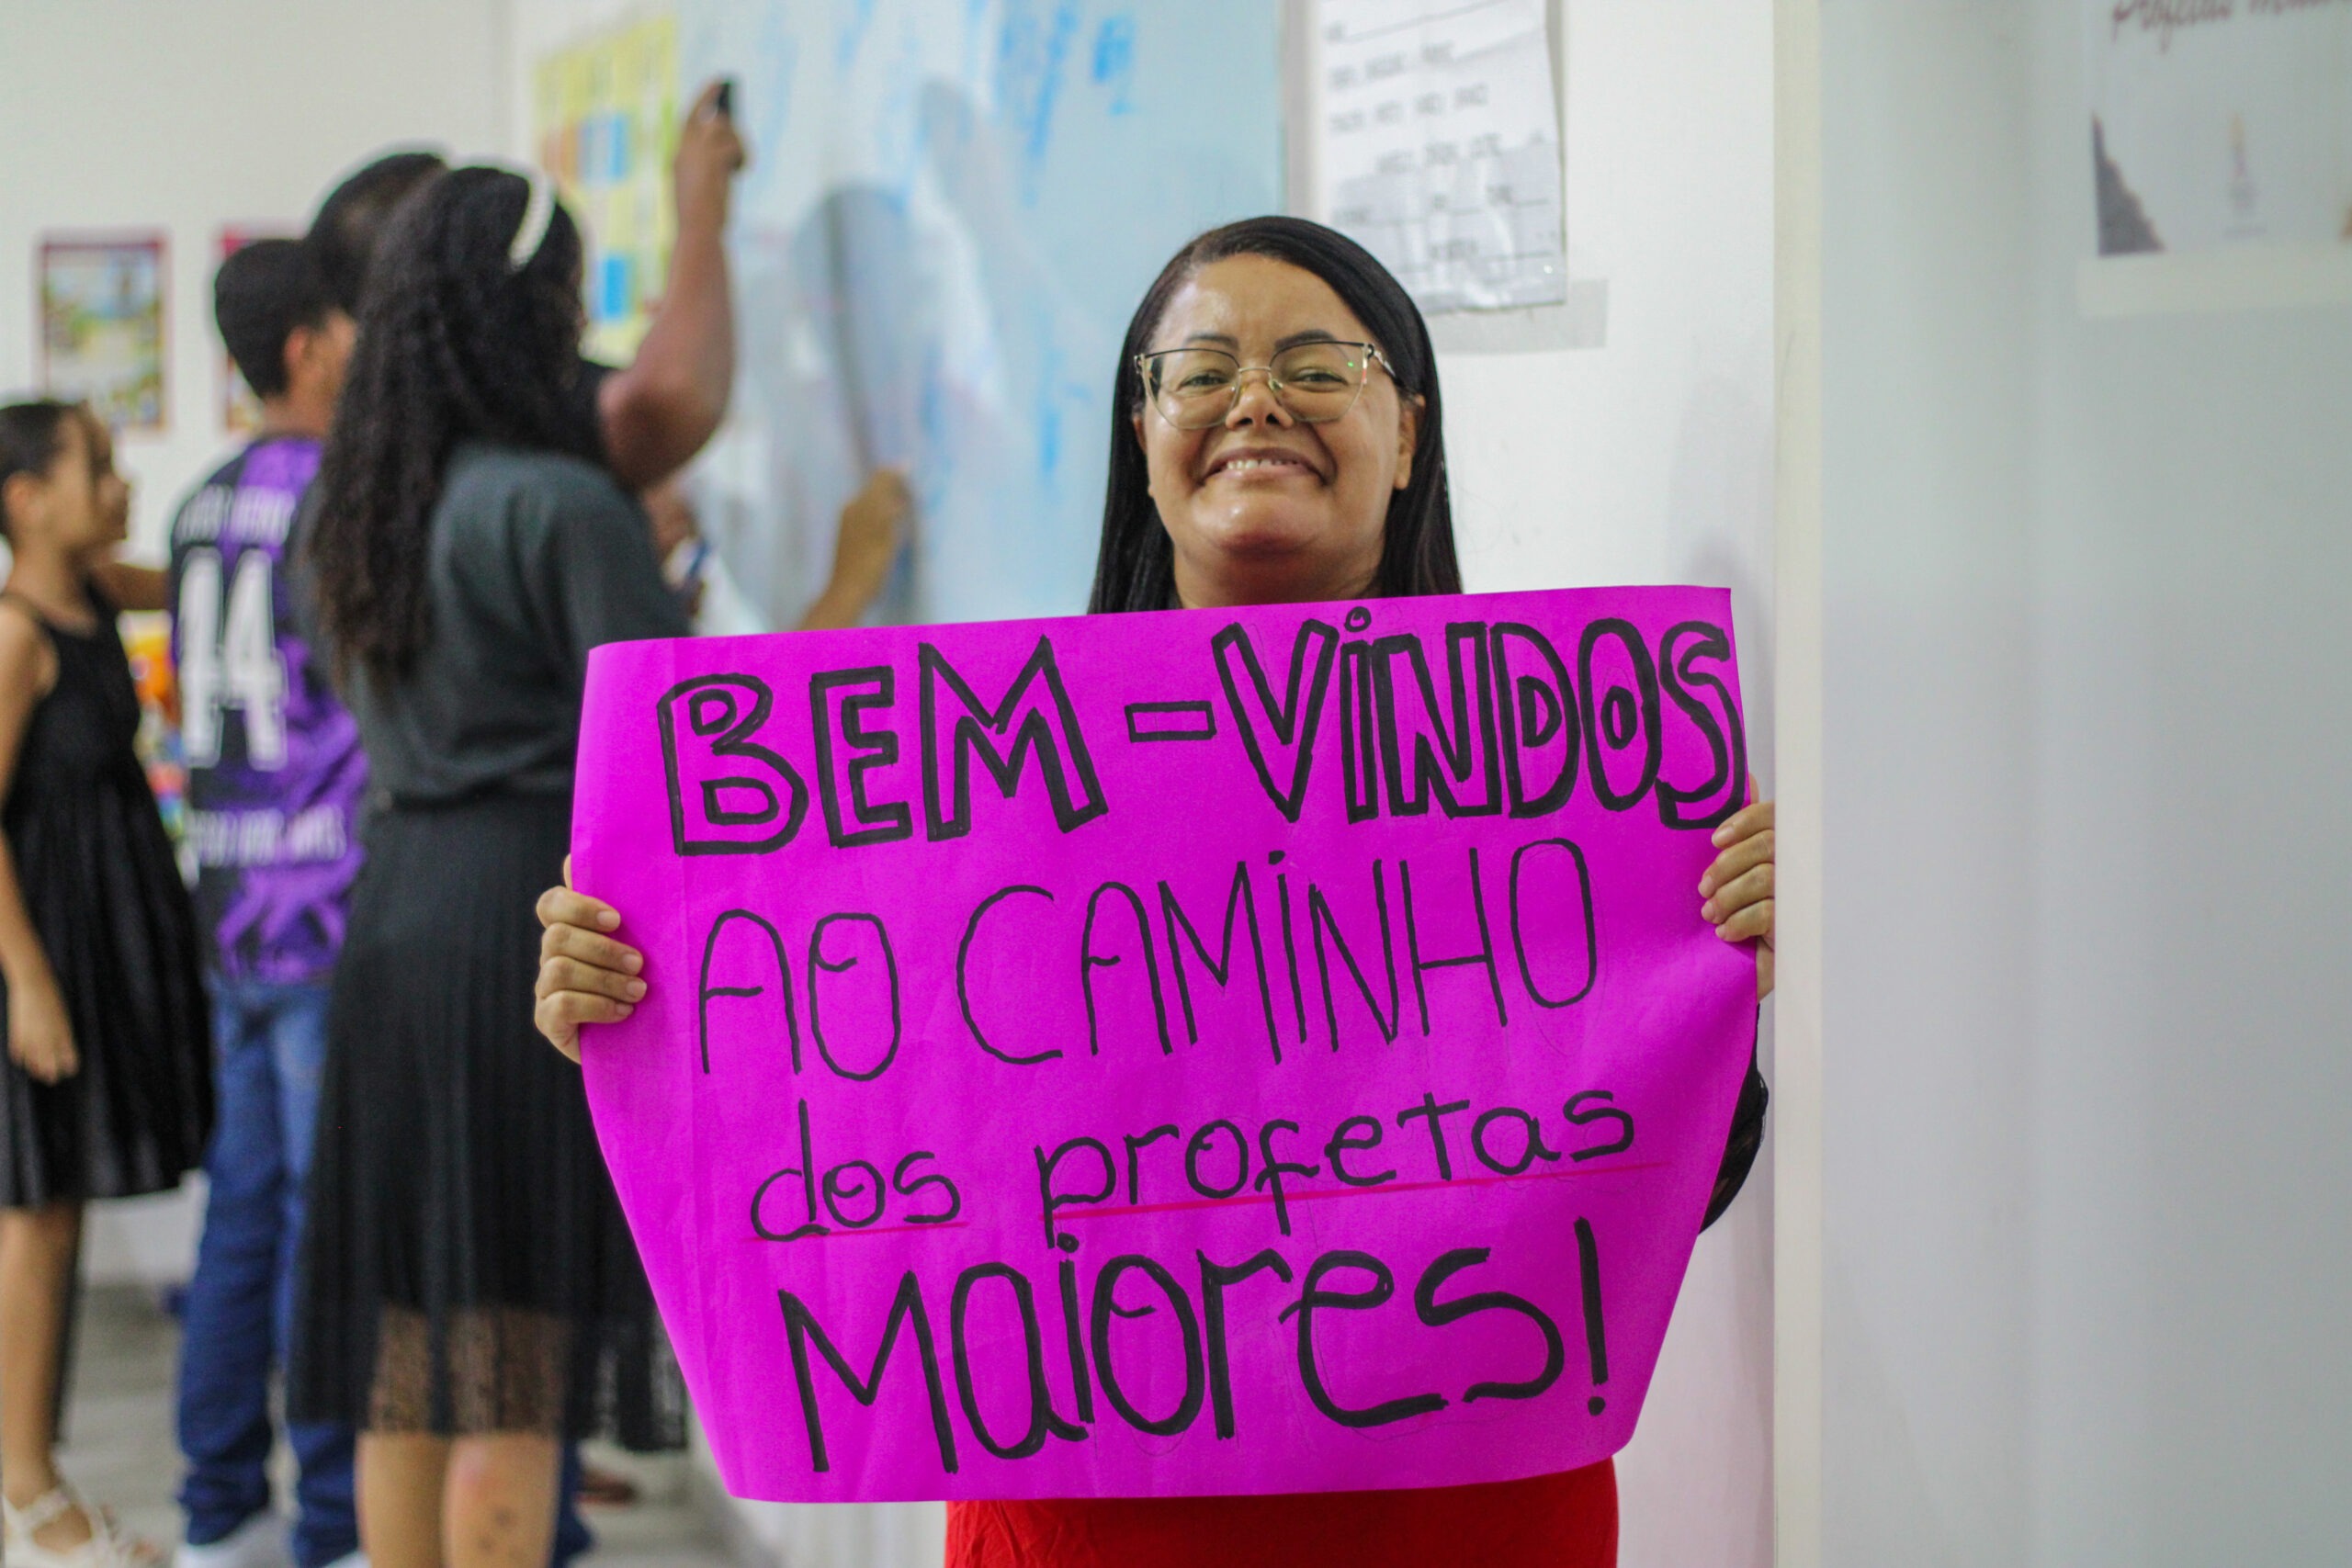 BEM-ViNDOS
AO CAMiNHO
dos profetas
Maiores!
44